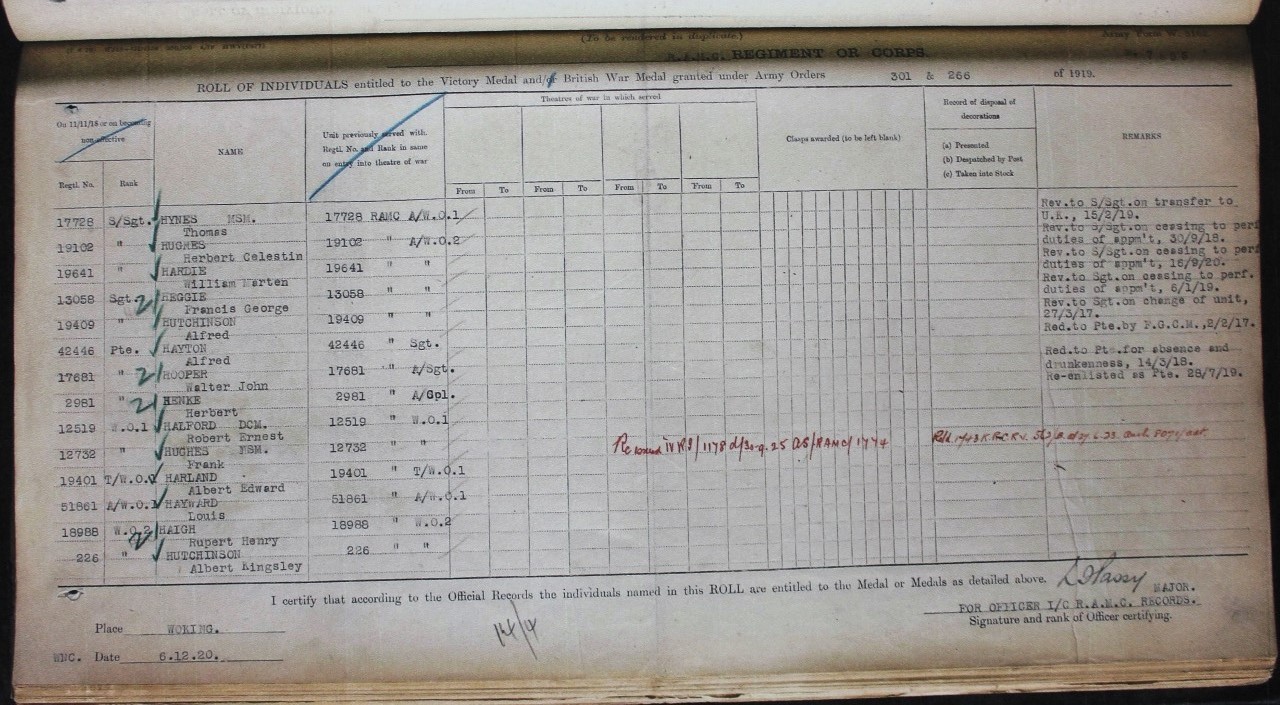 (To be rendered in duplicate.)
R.A.M.C. REGIMENT OR CORPS.
ROLL OF INDIVIDUALS entitled to the Victory Medal and/or British War Medal granted under Army Orders 301 & 266 of 1919.
On 11/11/18 or on becoming non-effective
Regtl. No. Rank
NAME
Unit previously served with. Regtl. No. and Rank in same on entry into theatre of war
Theatres of war in which served
From To From To From To From To
Clasps awarded (to be left blank)
Record of disposal of decorations
(a) Presented
(b) Despatched by Post
(c) Taken into Stock
REMARKS
17728 S/Sgt. HYNES MSM. 17728 RAMC A/W.O.1 Rev.to S/Sgt.on transfer to
Thomas U.K., 15/2/19.
19102 " HUGHES 19102 " A/W.O.2 Rev.to S/Sgt.on ceasing to perf
Herbert Celestin duties of appm't, 30/9/18.
19641 " HARDIE 19641 " " Rev.to S/Sgt.on ceasing to perf
William Marten duties of appm't, 16/9/20.
13058 Sgt. HEGGIE 13058 " " Rev.to Sgt.on ceasing to perf.
Francis George duties of appm't, 6/1/19.
19409 " HUTCHINSON 19409 " " Rev.to Sgt.on change of unit,
Alfred 27/3/17.
42446 Pte. HAYTON 42446 " Sgt. Red.to Pte.by F.G.C.M.,2/2/17.
Alfred
17681 " HOOPER 17681 " A/Sgt. Red.to Pte.for absence and
Walter John drunkenness, 14/3/18.
2981 " HENKE 2981 " A/Cpl. Re-enlisted as Pte. 28/7/19.
Herbert
12519 W.O.1 HALFORD DCM. 12519 " W.O.1
Robert Ernest
12732 " HUGHES MSM. 12732 " "
Frank
19401 T/W.O.1 HARLAND 19401 " T/W.O.1
Albert Edward
51861 A/W.O.1 HAYWARD 51861 " A/W.O.1
Louis
18988 W.O.2 HAIGH 18988 " W.O.2
Rupert Henry
226 " HUTCHINSON 226 " "
Albert Kingsley
I certify that according to the Official Records the individuals named in this ROLL are entitled to the Medal or Medals as detailed above.
MAJOR.
FOR OFFICER I/C R.A.M.C. RECORDS.
Signature and rank of Officer certifying.
Place WOKING.
WNC. Date 6.12.20.